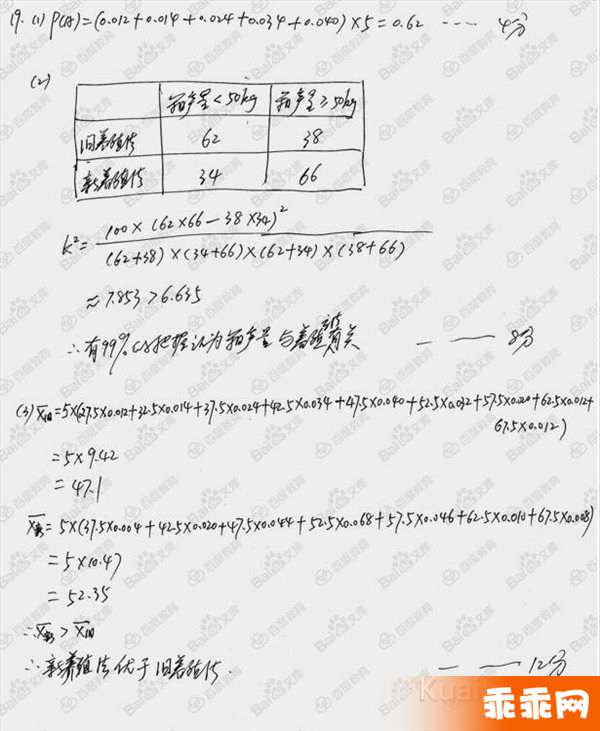 19. (1) P(A)=(0.012+0.014+0.024+0.034+0.040)×5=0.62 ---- 4分
(2)
箱产量<50kg 箱产量≥50kg
旧养殖法 62 38
新养殖法 34 66
K²= 100×(62×66-38×34)²
(62+38)×(34+66)×(62+34)×(38+66)
≈7.853>6.635
∴有99%以上把握认为箱产量与养殖方法有关 — —— 8分
(3) x旧=5×(27.5×0.012+32.5×0.014+37.5×0.024+42.5×0.034+47.5×0.040+52.5×0.032+57.5×0.020+62.5×0.012+
67.5×0.012)
=5×9.42
=47.1
x新=5×(37.5×0.004+42.5×0.020+47.5×0.044+52.5×0.068+57.5×0.046+62.5×0.010+67.5×0.008)
=5×10.47
=52.35
∴x新>x旧
∴新养殖法优于旧养殖法. — —— 12分
乖乖网
Baidu文库
百度教育